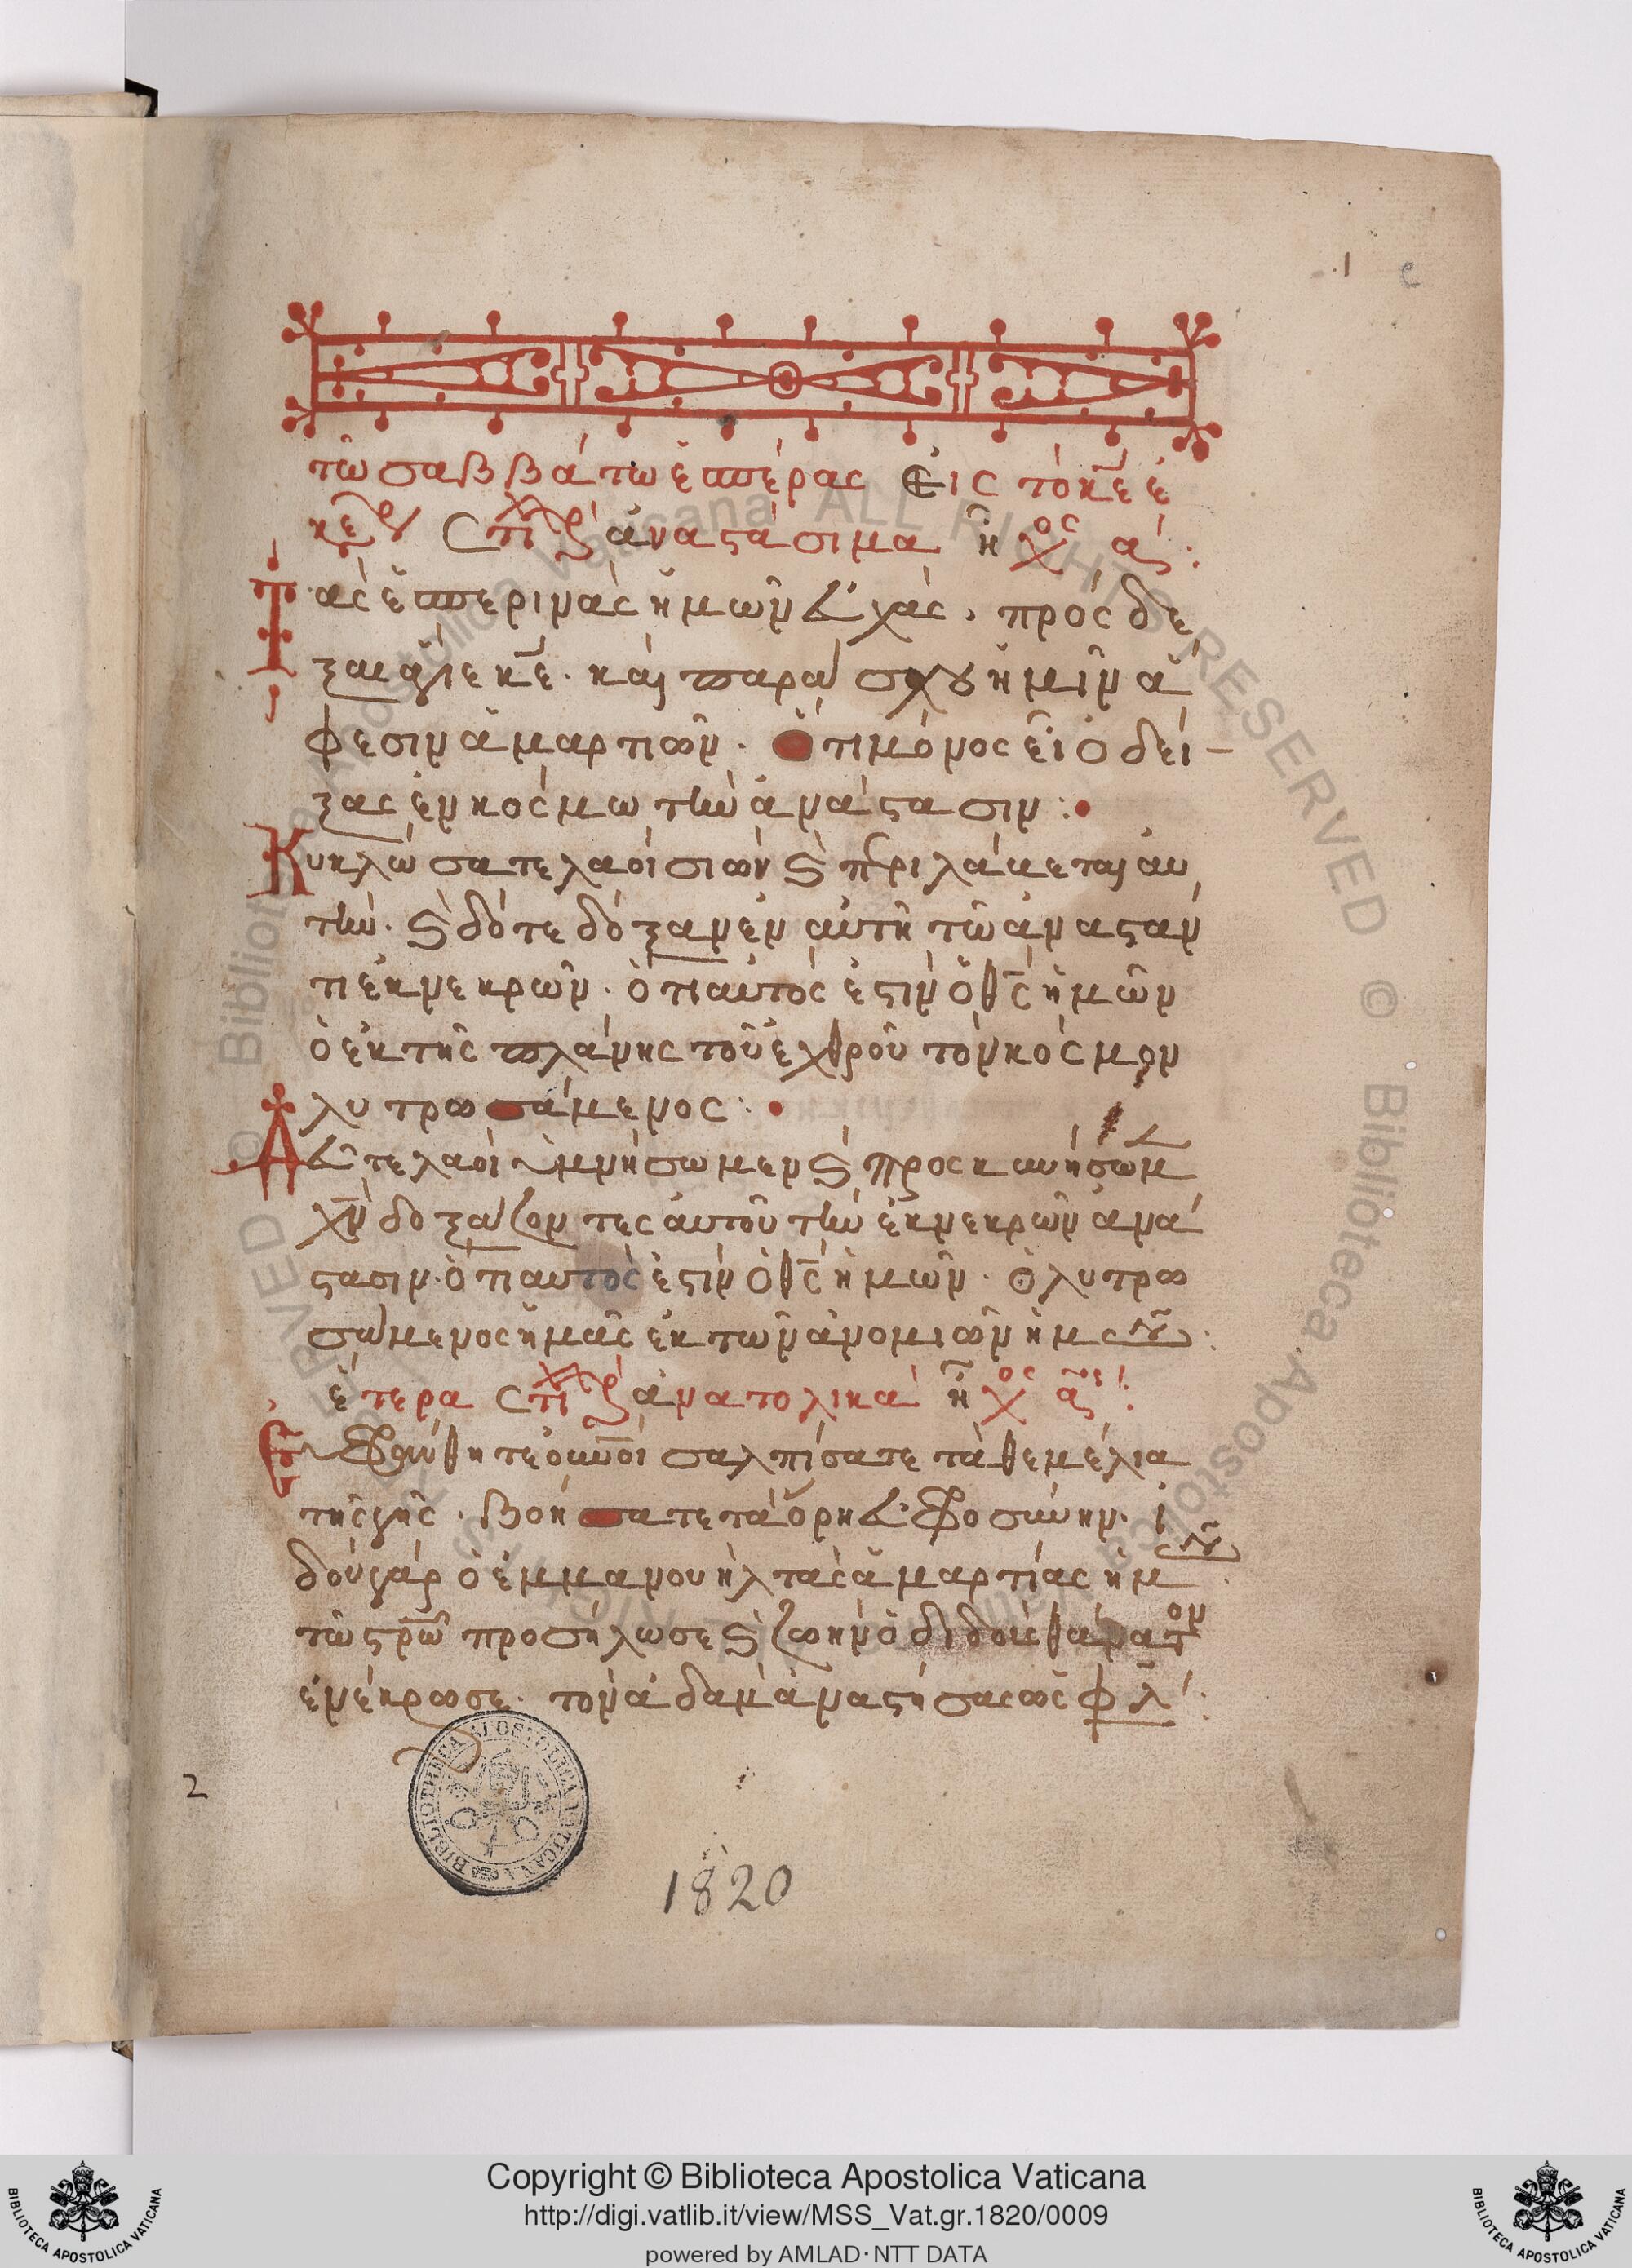 .1 e
τῶ σαββάτω ἑσπέρας Εἰς τὸ κ̅ε ἐ
κέκρ Στιχρ ἀναστάσιμα ἦχος α΄:
Τὰς ἑσπερινὰς ἡμῶν εὐχὰς, πρόσδε
ξαι ἅγιε κ̅ε. καὶ παράσχου ἡμῖν ἄ
φεσιν ἁμαρτιῶν. ὅτι μόνος εἶ ὁ δεί
ξας ἐν κόσμω τὴν ἀνάστασιν:
Κυκλώσατε λαοὶ σιὼν καὶ περιλάβετε αὐ
τήν. καὶ δότε δόξαν ἐν αὐτῆ τῶ ἀναστάν
τι ἐκ νεκρῶν. ὅτι αὐτός ἐστιν ὁ θ̅ς ἡμῶν
ὁ ἐκ τῆς πλάνης τοῦ ἐχθροῦ τὸν κόσμον
λυτρωσάμενος:
Δεῦτε λαοὶ ὑμνήσωμεν καὶ προσκυνήσωμεν
χ̅ν δοξάζοντες αὐτοῦ τὴν ἐκ νεκρῶν ἀνά
στασιν. ὅτι αὐτός ἐστιν ὁ θ̅ς ἡμῶν. ὁ λυτρω
σάμενος ἡμᾶς ἐκ τῶν ἀνομιῶν ἡμῶν:
ἕτερα Στιχρ ἀνατολικὰ ἦχος α΄:
Εὐφράνθητε οὐνοὶ σαλπίσατε τὰ θεμέλια
τῆς γῆς. βοήσατε τὰ ὄρη εὐφροσύνην. ἰ
δοὺ γὰρ ὁ ἐμμανουὴλ τὰς ἁμαρτίας ἡμῶν
τῶ στρω προσήλωσε καὶ ζωὴν ὁ διδοὺς θάνατον
ἐνέκρωσε. τὸν ἀδὰμ ἀναστήσας ὡς φλ:
2
BIBLIOTHECA APOSTOLICA VATICANA
1820
© Biblioteca Apostolica Vaticana ALL RIGHTS RESERVED
Copyright © Biblioteca Apostolica Vaticana
http://digi.vatlib.it/view/MSS_Vat.gr.1820/0009
powered by AMLAD·NTT DATA
BIBLIOTECA APOSTOLICA VATICANA
BIBLIOTECA APOSTOLICA VATICANA